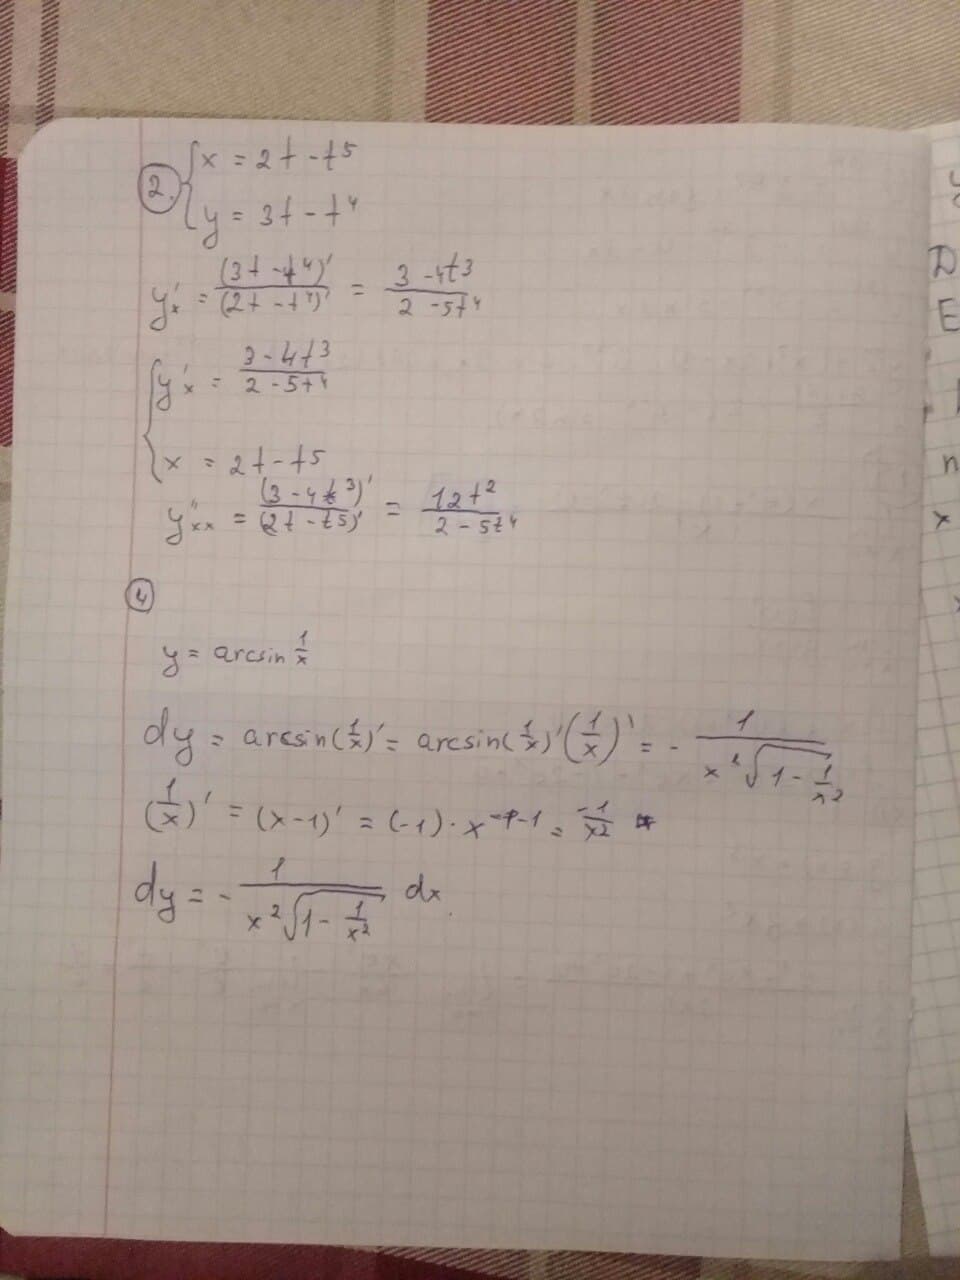 2. { x = 2t - t⁵
y = 3t - t⁴
y'ₓ = (3t - t⁴)' / (2t - t⁴)' = 3 - 4t³ / 2 - 5t⁴
{ y'ₓ = 3 - 4t³ / 2 - 5t⁴
x = 2t - t⁵
y''ₓₓ = (3 - 4t³)' / (2t - t⁵)' = 12t² / 2 - 5t⁴
4
y = arcsin 1/x
dy = arcsin(1/x)' = arcsin(1/x)'(1/x)' = - 1 / x²√1 - 1/x²
(1/x)' = (x-1)' = (-1) · x⁻¹⁻¹ = -1/x²
dy = - 1 / x²√1 - 1/x² dx.
y
D
E
n
x